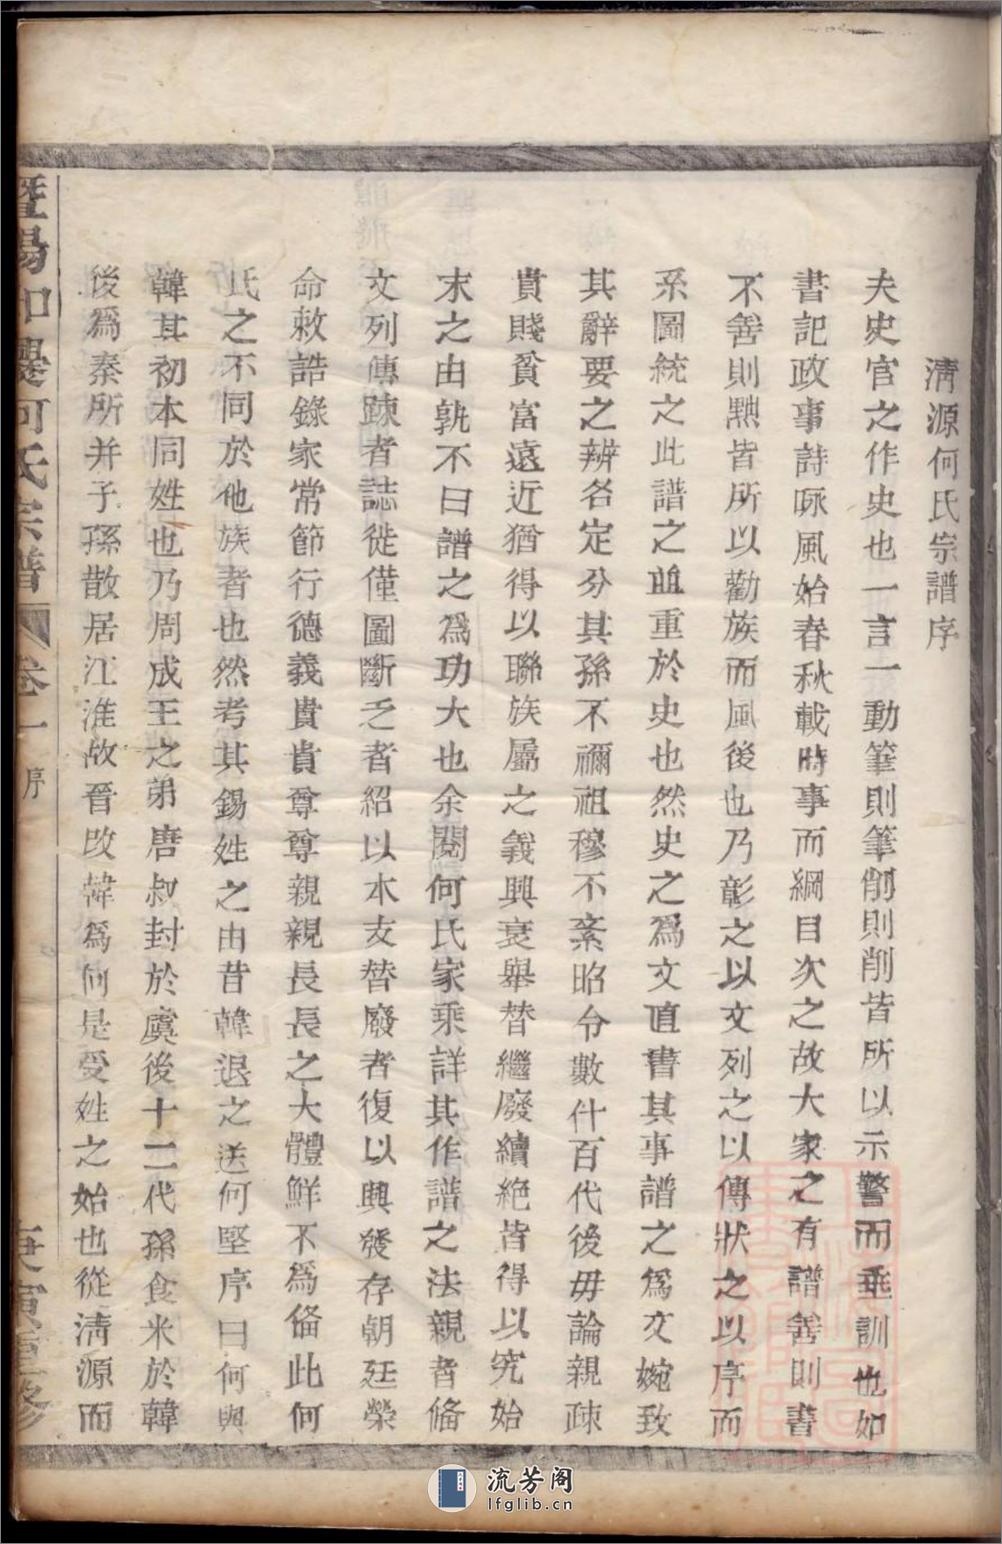 清源何氏宗譜序
夫史官之作史也一言一動筆則筆削則削皆所以示警而垂訓也如
書記政事詩咏風始春秋載時事而綱目次之故大家之有譜善則書
不善則點皆所以勸族而風後也乃彰之以文列之以傳狀之以序而
系圖統之此譜之並重於史也然史之爲文直書其事譜之爲文婉致
其辭要之辨名定分其孫不禰祖穆不紊昭令數什百代後毋論親疎
貴賤貧富遠近猶得以聯族屬之義興衰舉替繼廢續絶皆得以究始
末之由孰不曰譜之爲功大也余閱何氏家乘詳其作譜之法親者俻
文列傳疎者誌徙僅圖斷乏者紹以本支替廢者復以興發存朝廷榮
命敕誥錄家常節行德義貴貴尊尊親親長長之大體鮮不爲俻此何
氏之不同於他族者也然考其錫姓之由昔韓退之送何堅序曰何與
韓其初本同姓也乃周成王之弟唐叔封於虞後十二代孫食米於韓
後爲秦所并子孫散居江淮故晉改韓爲何是受姓之始也從清源而
暨陽如璺何氏宗譜 卷一 序 庚寅重修
流芳阁
lfglib.cn